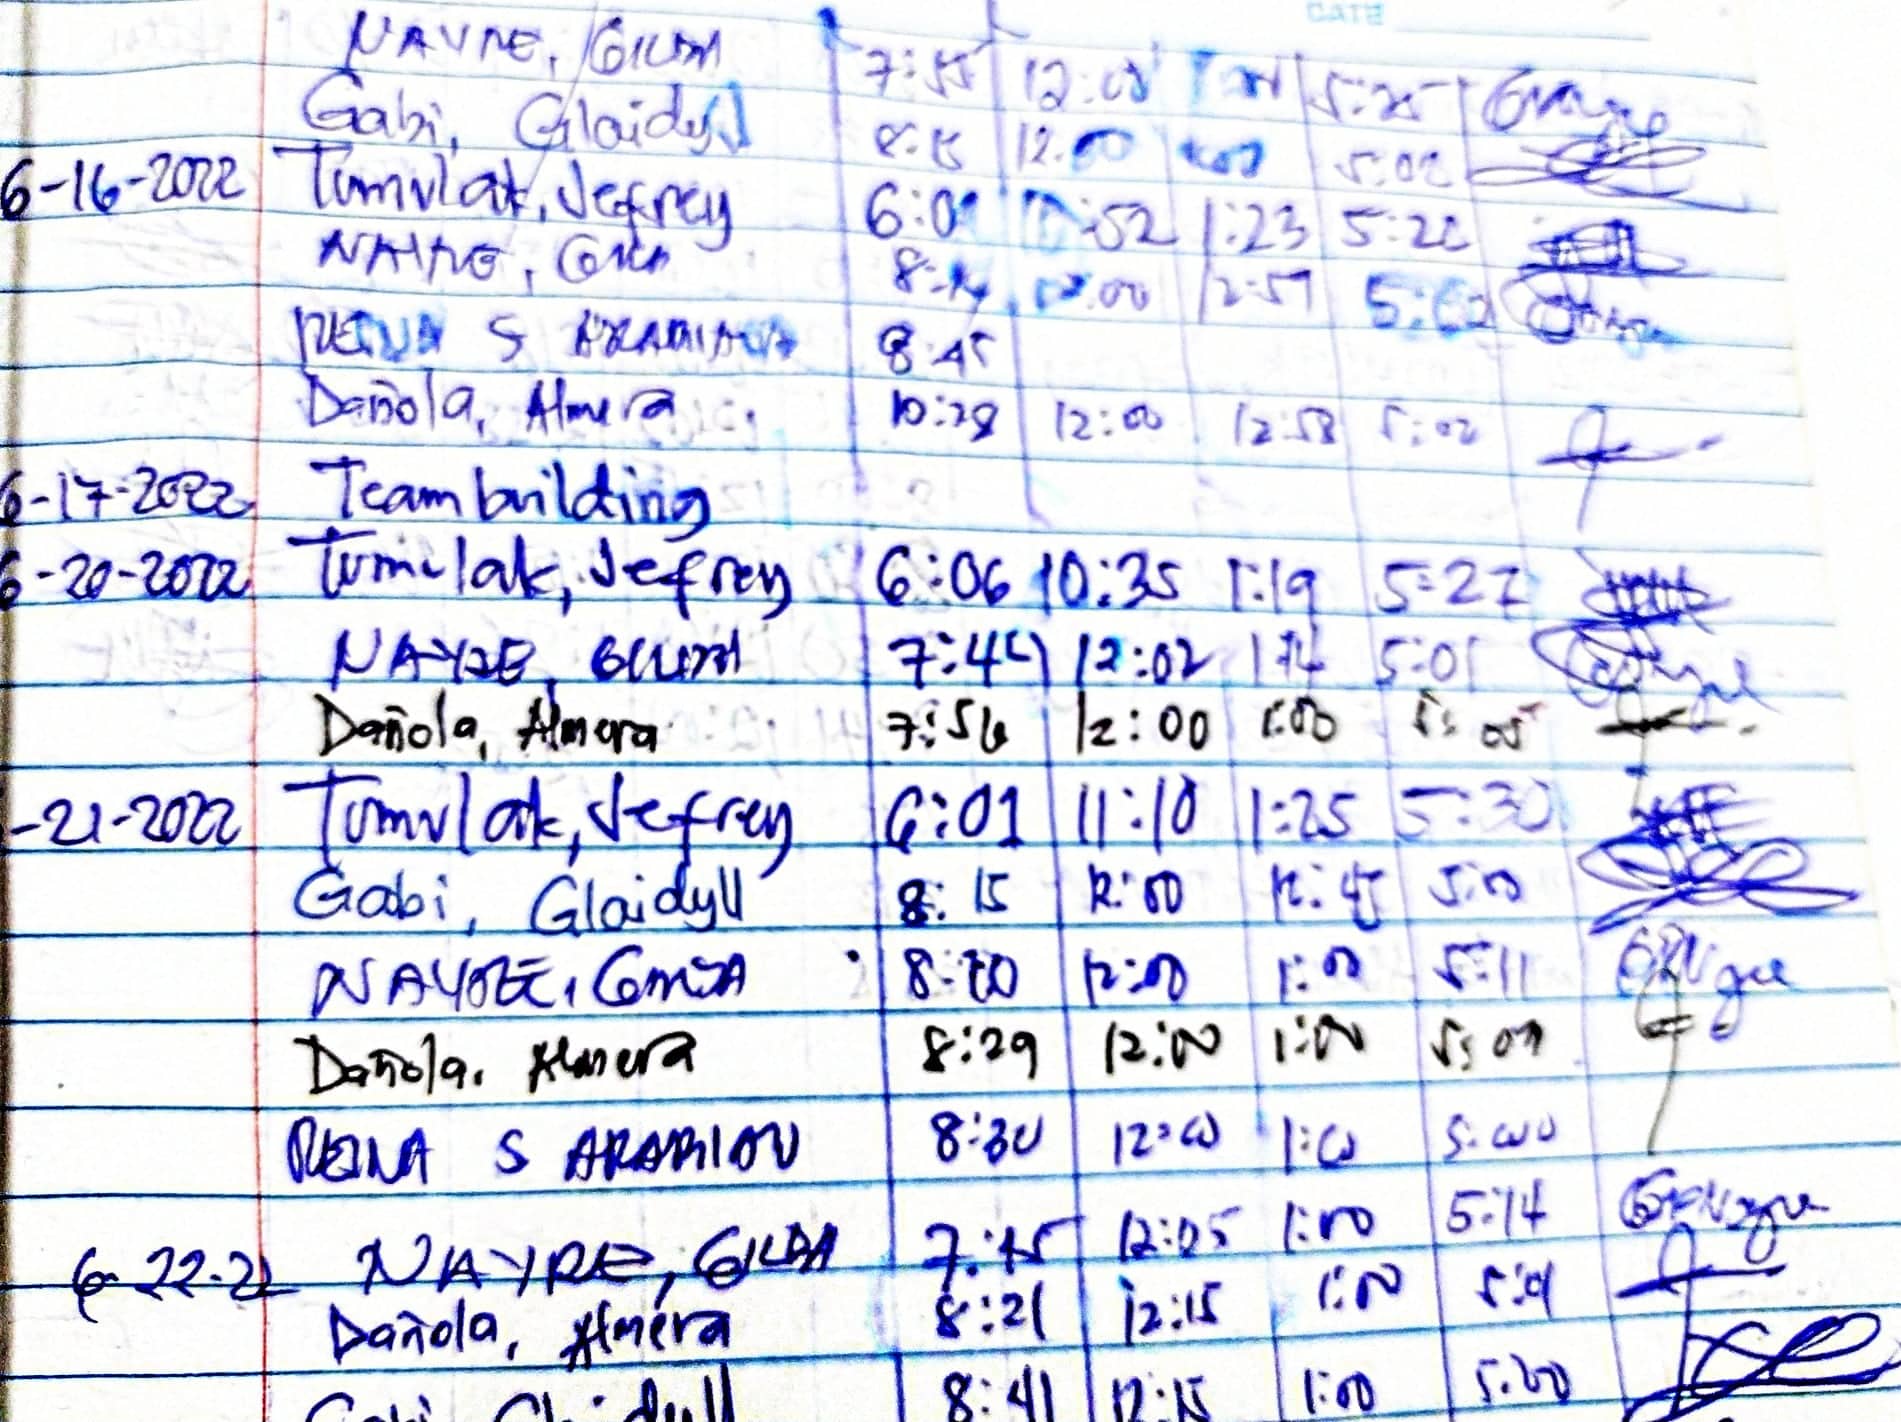 DATE
NAYRE, GILDA 7:55 12:00 5:25
Gabi, Glaidyll 8:15 12:00 5:02
6-16-2022 Tumulak, Jefrey 6:01 :52 1:23 5:22
NAYRE, 8:14 12:00 12:59 5:02
REINA S ARABIANA 8:45
Dañola, Almera 10:28 12:00 12:58 5:02
6-17-2022 Teambuilding
6-20-2022 Tumulak, Jefrey 6:06 10:35 1:19 5:27
NAYRE, GILDA 7:44 12:02 5:01
Dañola, Almera 7:56 12:00 1:00 5:05
-21-2022 Tumulak, Jefrey 6:01 11:10 1:25 5:30
Gabi, Glaidyll 8:15 12:00 12:45 5:00
NAYRE, GILDA 8:20 12:00 1:00 5:11
Dañola, Almera 8:29 12:00 1:00 5:01
REINA S ARABION 8:30 12:00 1:00 5:00
6-22-22 NAYRE, GILDA 7:45 12:05 1:00 5:14
Dañola, Almera 8:21 12:15 1:00 5:01
Gabi, Glaidyll 8:41 12:15 1:00 5:00